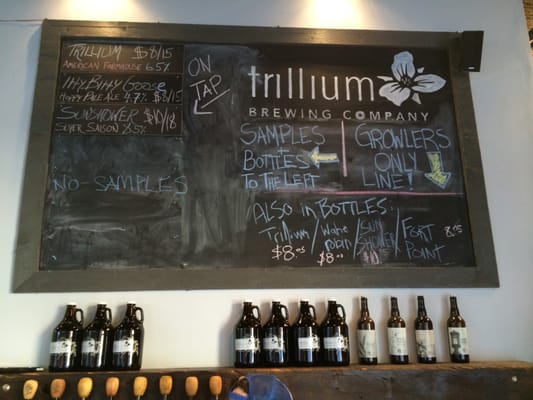 TRILLIUM $8/15
AMERICAN FARMHOUSE 6.5%
ITTY BITTY GOOSE
HOPPY PALE ALE 4.7% $8/15
SUNSHOWER $10/18
SUPER SAISON 8.5%
NO-SAMPLES
ON
TAP
trillium
BREWING COMPANY
SAMPLES
+
BOTTLES
TO THE LEFT
GROWLERS
ONLY
LINE!
ALSO IN BOTTLES:
Trillium / Wake robin / SUN SHOWER / FORT POINT 8.15
$8.05 $8.05 $10